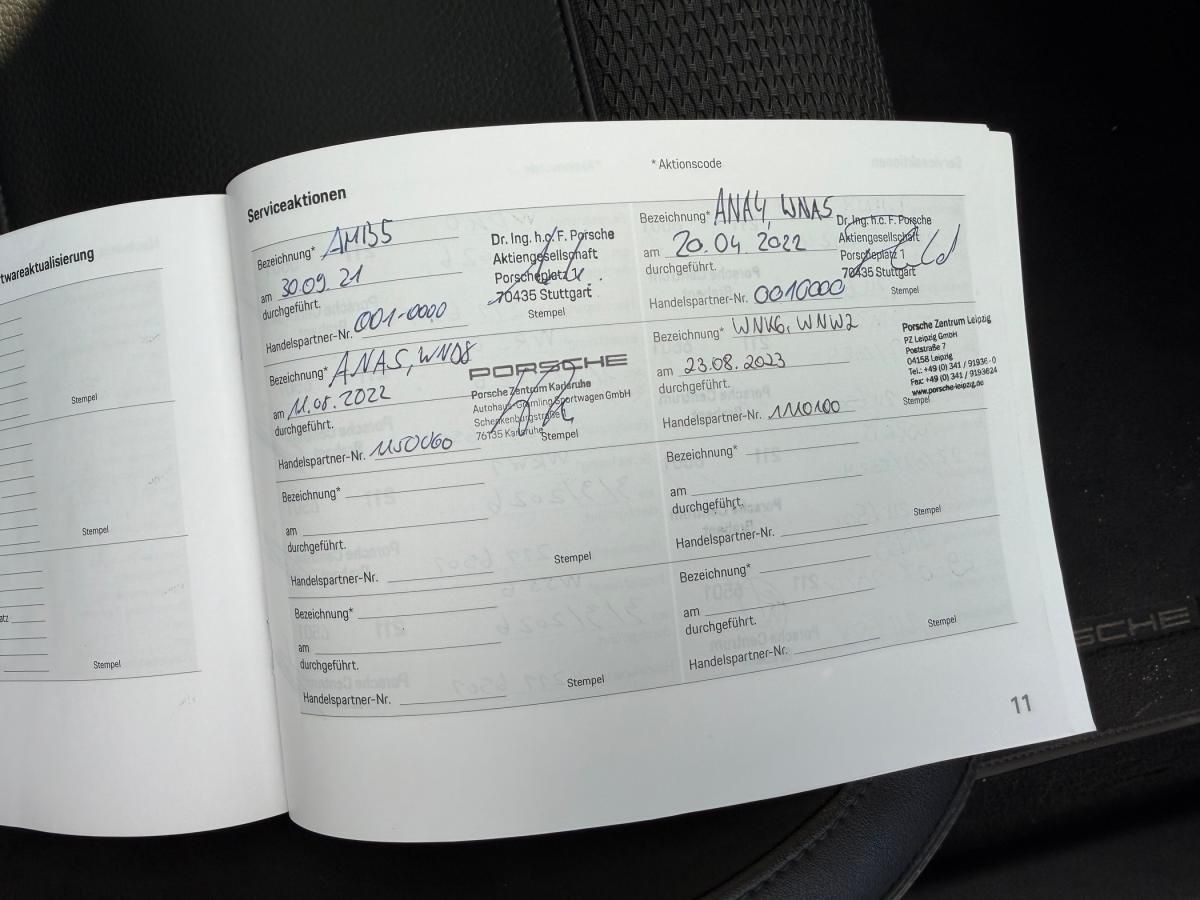 twareaktualisierung
Stempel
Stempel
atz
Stempel
Serviceaktionen
* Aktionscode
Bezeichnung* AMB5
am 30.09.21
durchgeführt.
Handelspartner-Nr. 001-0000
Dr. Ing. h.c. F. Porsche
Aktiengesellschaft
Porscheplatz 1
70435 Stuttgart
Stempel
Bezeichnung* ANA4, WNA5
am 20.04.2022
durchgeführt.
Handelspartner-Nr. 0010000
Dr. Ing. h.c. F. Porsche
Aktiengesellschaft
Porscheplatz 1
70435 Stuttgart
Stempel
Bezeichnung* ANAS, WND8
am 11.08.2022
durchgeführt.
Handelspartner-Nr. 1150060
PORSCHE
Porsche Zentrum Karlsruhe
Autohaus Gramling Sportwagen GmbH
76135 Karlsruhe
Stempel
Bezeichnung* WNK6, WNW2
am 23.08.2023
durchgeführt.
Handelspartner-Nr. 1110100
Porsche Zentrum Leipzig
PZ Leipzig GmbH
Poststraße 7
04158 Leipzig
Tel.: +49 (0) 341 / 91936-0
Fax: +49 (0) 341 / 9193624
www.porsche-leipzig.de
Stempel
Bezeichnung*
am
durchgeführt.
Handelspartner-Nr.
Stempel
Bezeichnung*
am
durchgeführt.
Handelspartner-Nr.
Stempel
Bezeichnung*
am
durchgeführt.
Handelspartner-Nr.
Stempel
Bezeichnung*
am
durchgeführt.
Handelspartner-Nr.
Stempel
11
SCHE